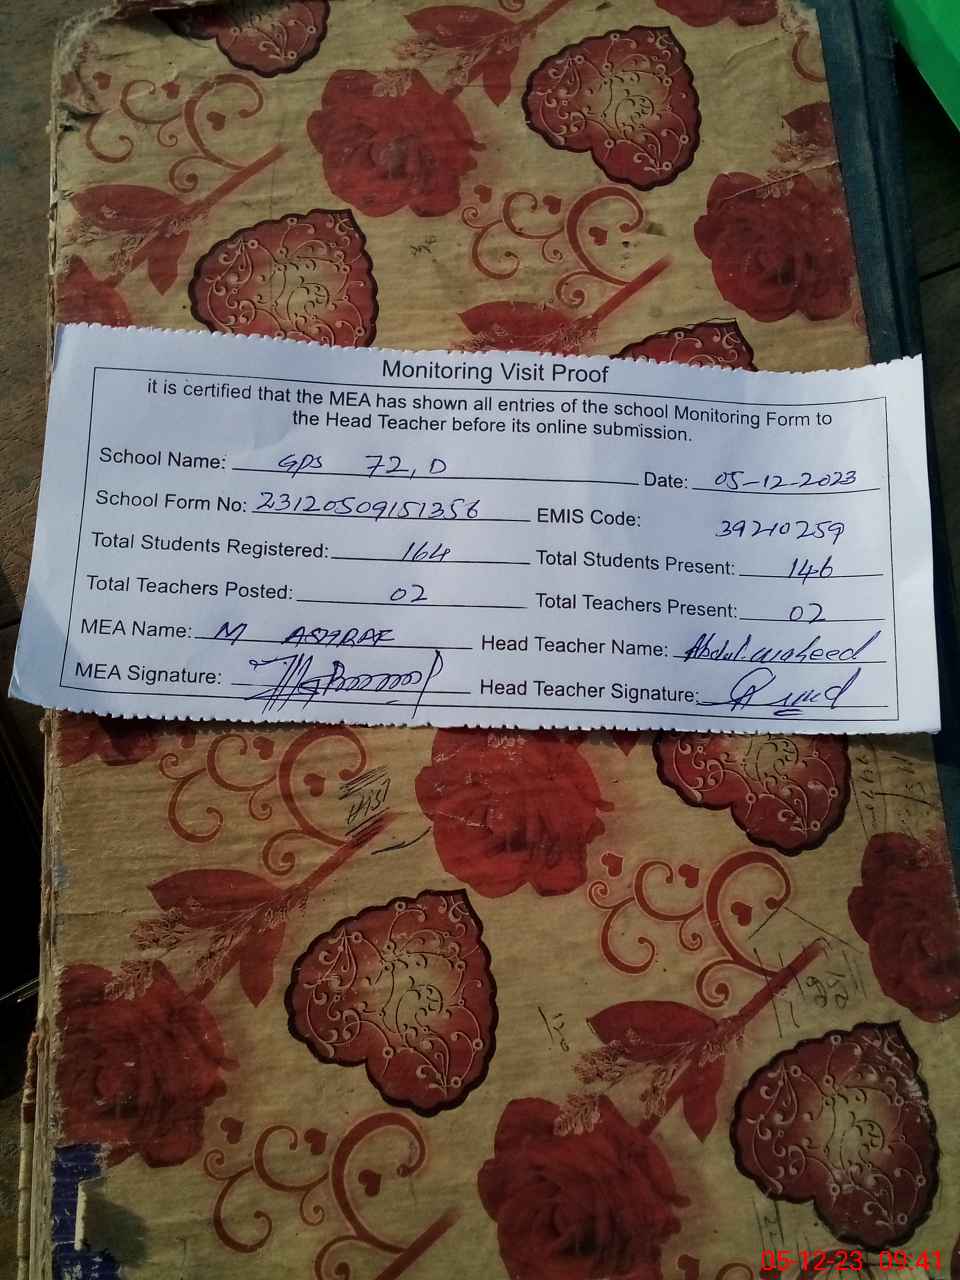 Monitoring Visit Proof
it is certified that the MEA has shown all entries of the school Monitoring Form to
the Head Teacher before its online submission.
School Name: GPS 72, D Date: 05-12-2023
School Form No: 23120509151356 EMIS Code: 39210259
Total Students Registered: 164 Total Students Present: 146
Total Teachers Posted: 02 Total Teachers Present: 02
MEA Name: M ASHRAF Head Teacher Name: Abdul waheed
MEA Signature: Head Teacher Signature:
05-12-23 09:41